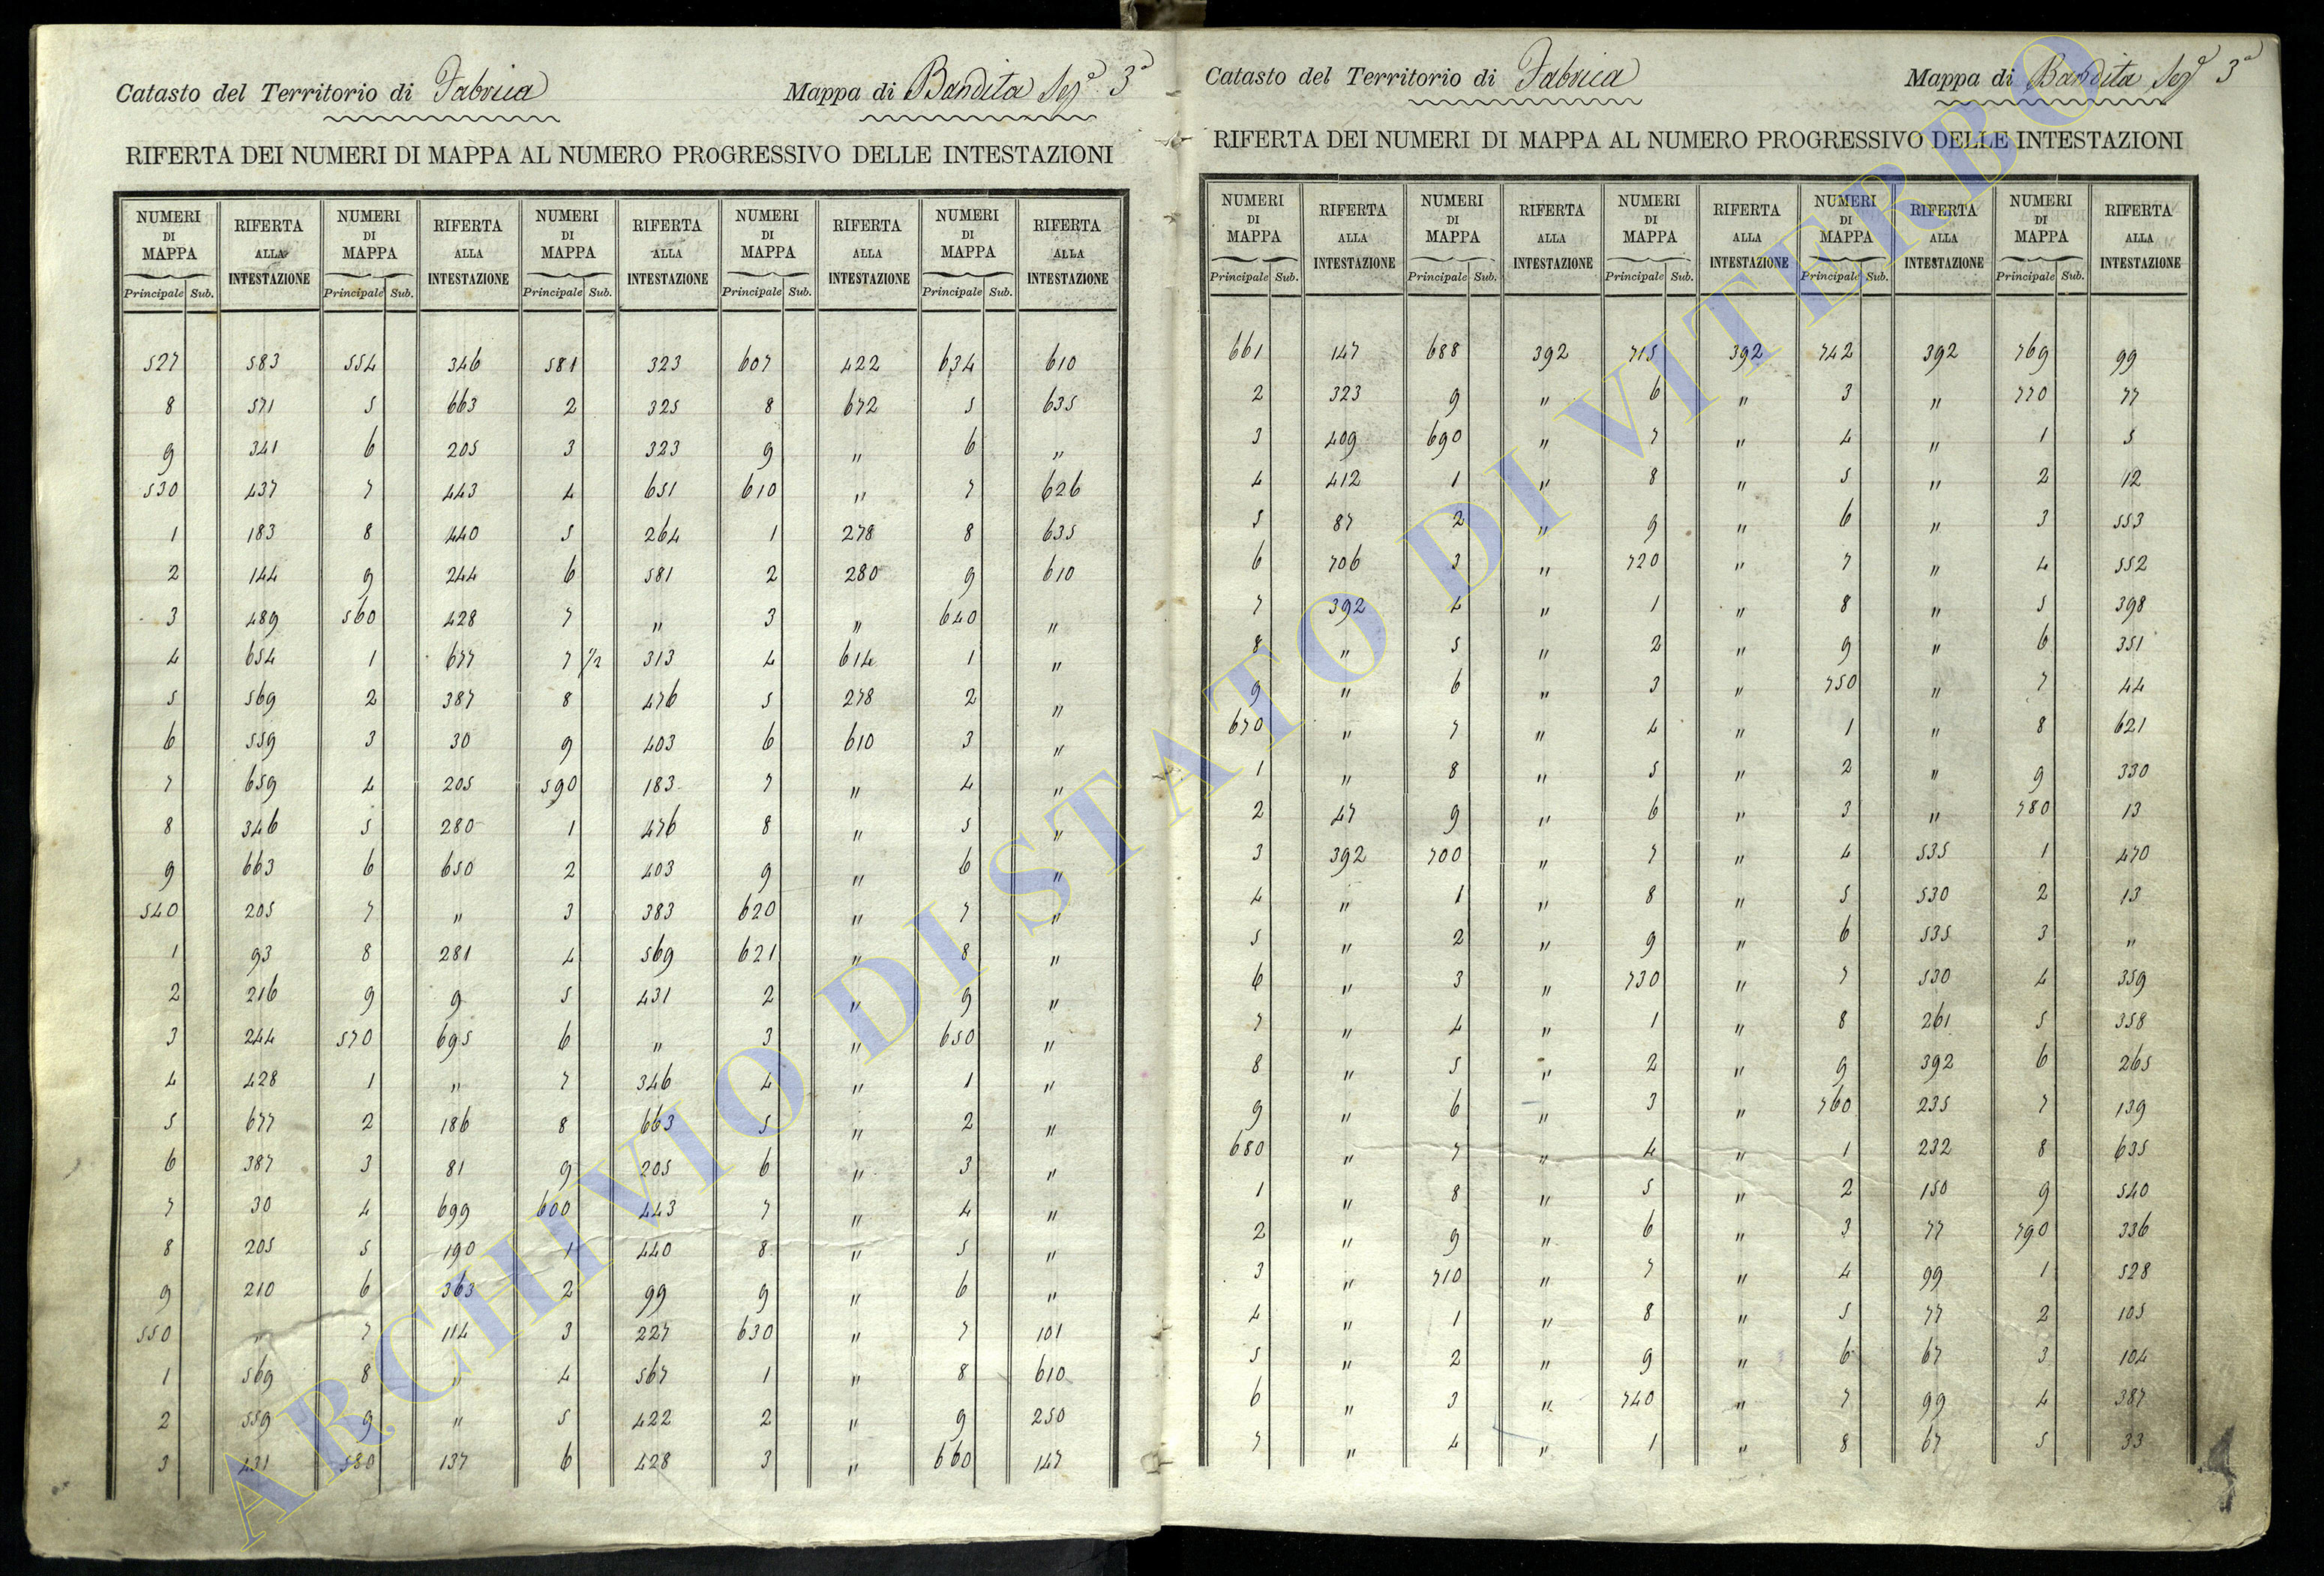 Catasto del Territorio di Fabrica Mappa di Bandita Sez.ª 3ª
RIFERTA DEI NUMERI DI MAPPA AL NUMERO PROGRESSIVO DELLE INTESTAZIONI
NUMERI DI MAPPA RIFERTA ALLA INTESTAZIONE NUMERI DI MAPPA RIFERTA ALLA INTESTAZIONE NUMERI DI MAPPA RIFERTA ALLA INTESTAZIONE NUMERI DI MAPPA RIFERTA ALLA INTESTAZIONE NUMERI DI MAPPA RIFERTA ALLA INTESTAZIONE
Principale Sub. Principale Sub. Principale Sub. Principale Sub. Principale Sub.
527 583 554 346 581 323 607 422 634 610
8 571 5 663 2 325 8 672 5 635
9 341 6 205 3 323 9 " 6 "
530 437 7 443 4 651 610 " 7 626
1 183 8 440 5 264 1 278 8 635
2 144 9 244 6 581 2 280 9 610
3 489 560 428 7 " 3 " 640 "
4 654 1 677 7 1/2 313 4 614 1 "
5 569 2 387 8 476 5 278 2 "
6 559 3 30 9 403 6 610 3 "
7 659 4 205 590 183 7 " 4 "
8 346 5 280 1 476 8 " 5 "
9 663 6 650 2 403 9 " 6 "
540 205 7 " 3 383 620 " 7 "
1 93 8 281 4 569 621 " 8 "
2 216 9 9 5 431 2 " 9 "
3 244 570 695 6 " 3 " 650 "
4 428 1 " 7 346 4 " 1 "
5 677 2 186 8 663 5 " 2 "
6 387 3 81 9 205 6 " 3 "
7 30 4 699 600 443 7 " 4 "
8 205 5 190 1 440 8 " 5 "
9 210 6 363 2 99 9 " 6 "
550 " 7 114 3 227 630 " 7 101
1 569 8 " 4 567 1 " 8 610
2 559 9 " 5 422 2 " 9 250
3 431 580 137 6 428 3 " 660 147
Catasto del Territorio di Fabrica Mappa di Bandita Sezª 3ª
RIFERTA DEI NUMERI DI MAPPA AL NUMERO PROGRESSIVO DELLE INTESTAZIONI
NUMERI DI MAPPA RIFERTA ALLA INTESTAZIONE NUMERI DI MAPPA RIFERTA ALLA INTESTAZIONE NUMERI DI MAPPA RIFERTA ALLA INTESTAZIONE NUMERI DI MAPPA RIFERTA ALLA INTESTAZIONE NUMERI DI MAPPA RIFERTA ALLA INTESTAZIONE
Principale Sub. Principale Sub. Principale Sub. Principale Sub. Principale Sub.
661 147 688 392 715 392 742 392 769 99
2 323 9 " 6 " 3 " 770 77
3 409 690 " 7 " 4 " 1 5
4 412 1 " 8 " 5 " 2 12
5 87 2 " 9 " 6 " 3 553
6 706 3 " 720 " 7 " 4 552
7 392 4 " 1 " 8 " 5 398
8 " 5 " 2 " 9 " 6 351
9 " 6 " 3 " 750 " 7 44
670 " 7 " 4 " 1 " 8 621
1 " 8 " 5 " 2 " 9 330
2 47 9 " 6 " 3 " 780 13
3 392 700 " 7 " 4 535 1 470
4 " 1 " 8 " 5 530 2 13
5 " 2 " 9 " 6 535 3 "
6 " 3 " 730 " 7 530 4 359
7 " 4 " 1 " 8 261 5 358
8 " 5 " 2 " 9 392 6 265
9 " 6 " 3 " 760 235 7 139
680 " 7 " 4 " 1 232 8 635
1 " 8 " 5 " 2 150 9 540
2 " 9 " 6 " 3 77 790 336
3 " 710 " 7 " 4 99 1 528
4 " 1 " 8 " 5 77 2 105
5 " 2 " 9 " 6 67 3 104
6 " 3 " 740 " 7 99 4 387
7 " 4 " 1 " 8 67 5 33
ARCHIVIO DI STATO DI VITERBO